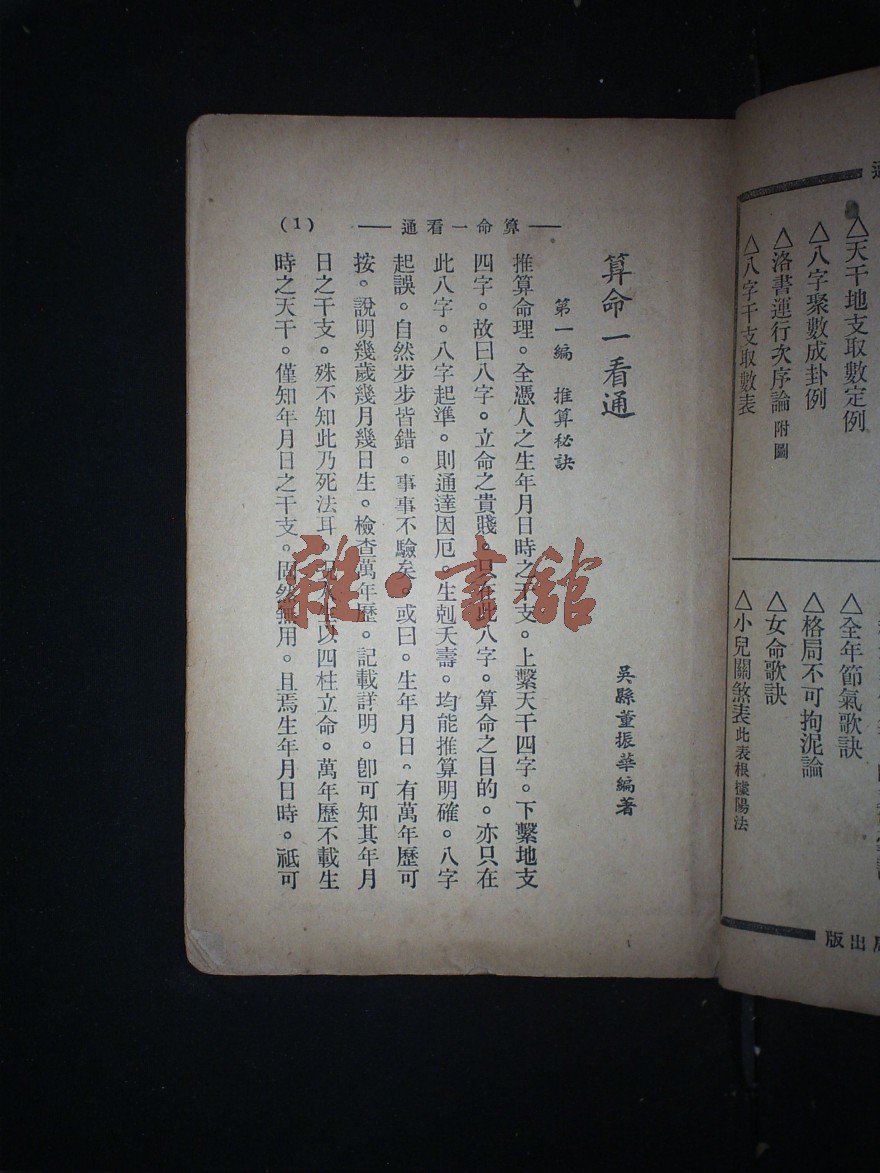 △天干地支取數定例
△八字聚數成卦例
△洛書運行次序論 附圖
△八字干支取數表
△全年節氣歌訣
△格局不可拘泥論
△女命歌訣
△小兒關煞表 此表根據陽法
出版
算命一看通
(1)
算命一看通
吳縣董振華編著
第一編 推算秘訣
推算命理。全憑人之生年月日時之干支。上繫天干四字。下繫地支
四字。故曰八字。立命之貴賤。只在此八字。算命之目的。亦只在
此八字。八字起準。則通達因厄。生剋夭壽。均能推算明確。八字
起誤。自然步步皆錯。事事不驗矣。或曰。生年月日。有萬年歷可
按。說明幾歲幾月幾日生。檢查萬年歷。記載詳明。卽可知其年月
日之干支。殊不知此乃死法耳。以四柱立命。萬年歷不載生
時之天干。僅知年月日之干支。固然無用。且焉生年月日時。祗可
雜·書館